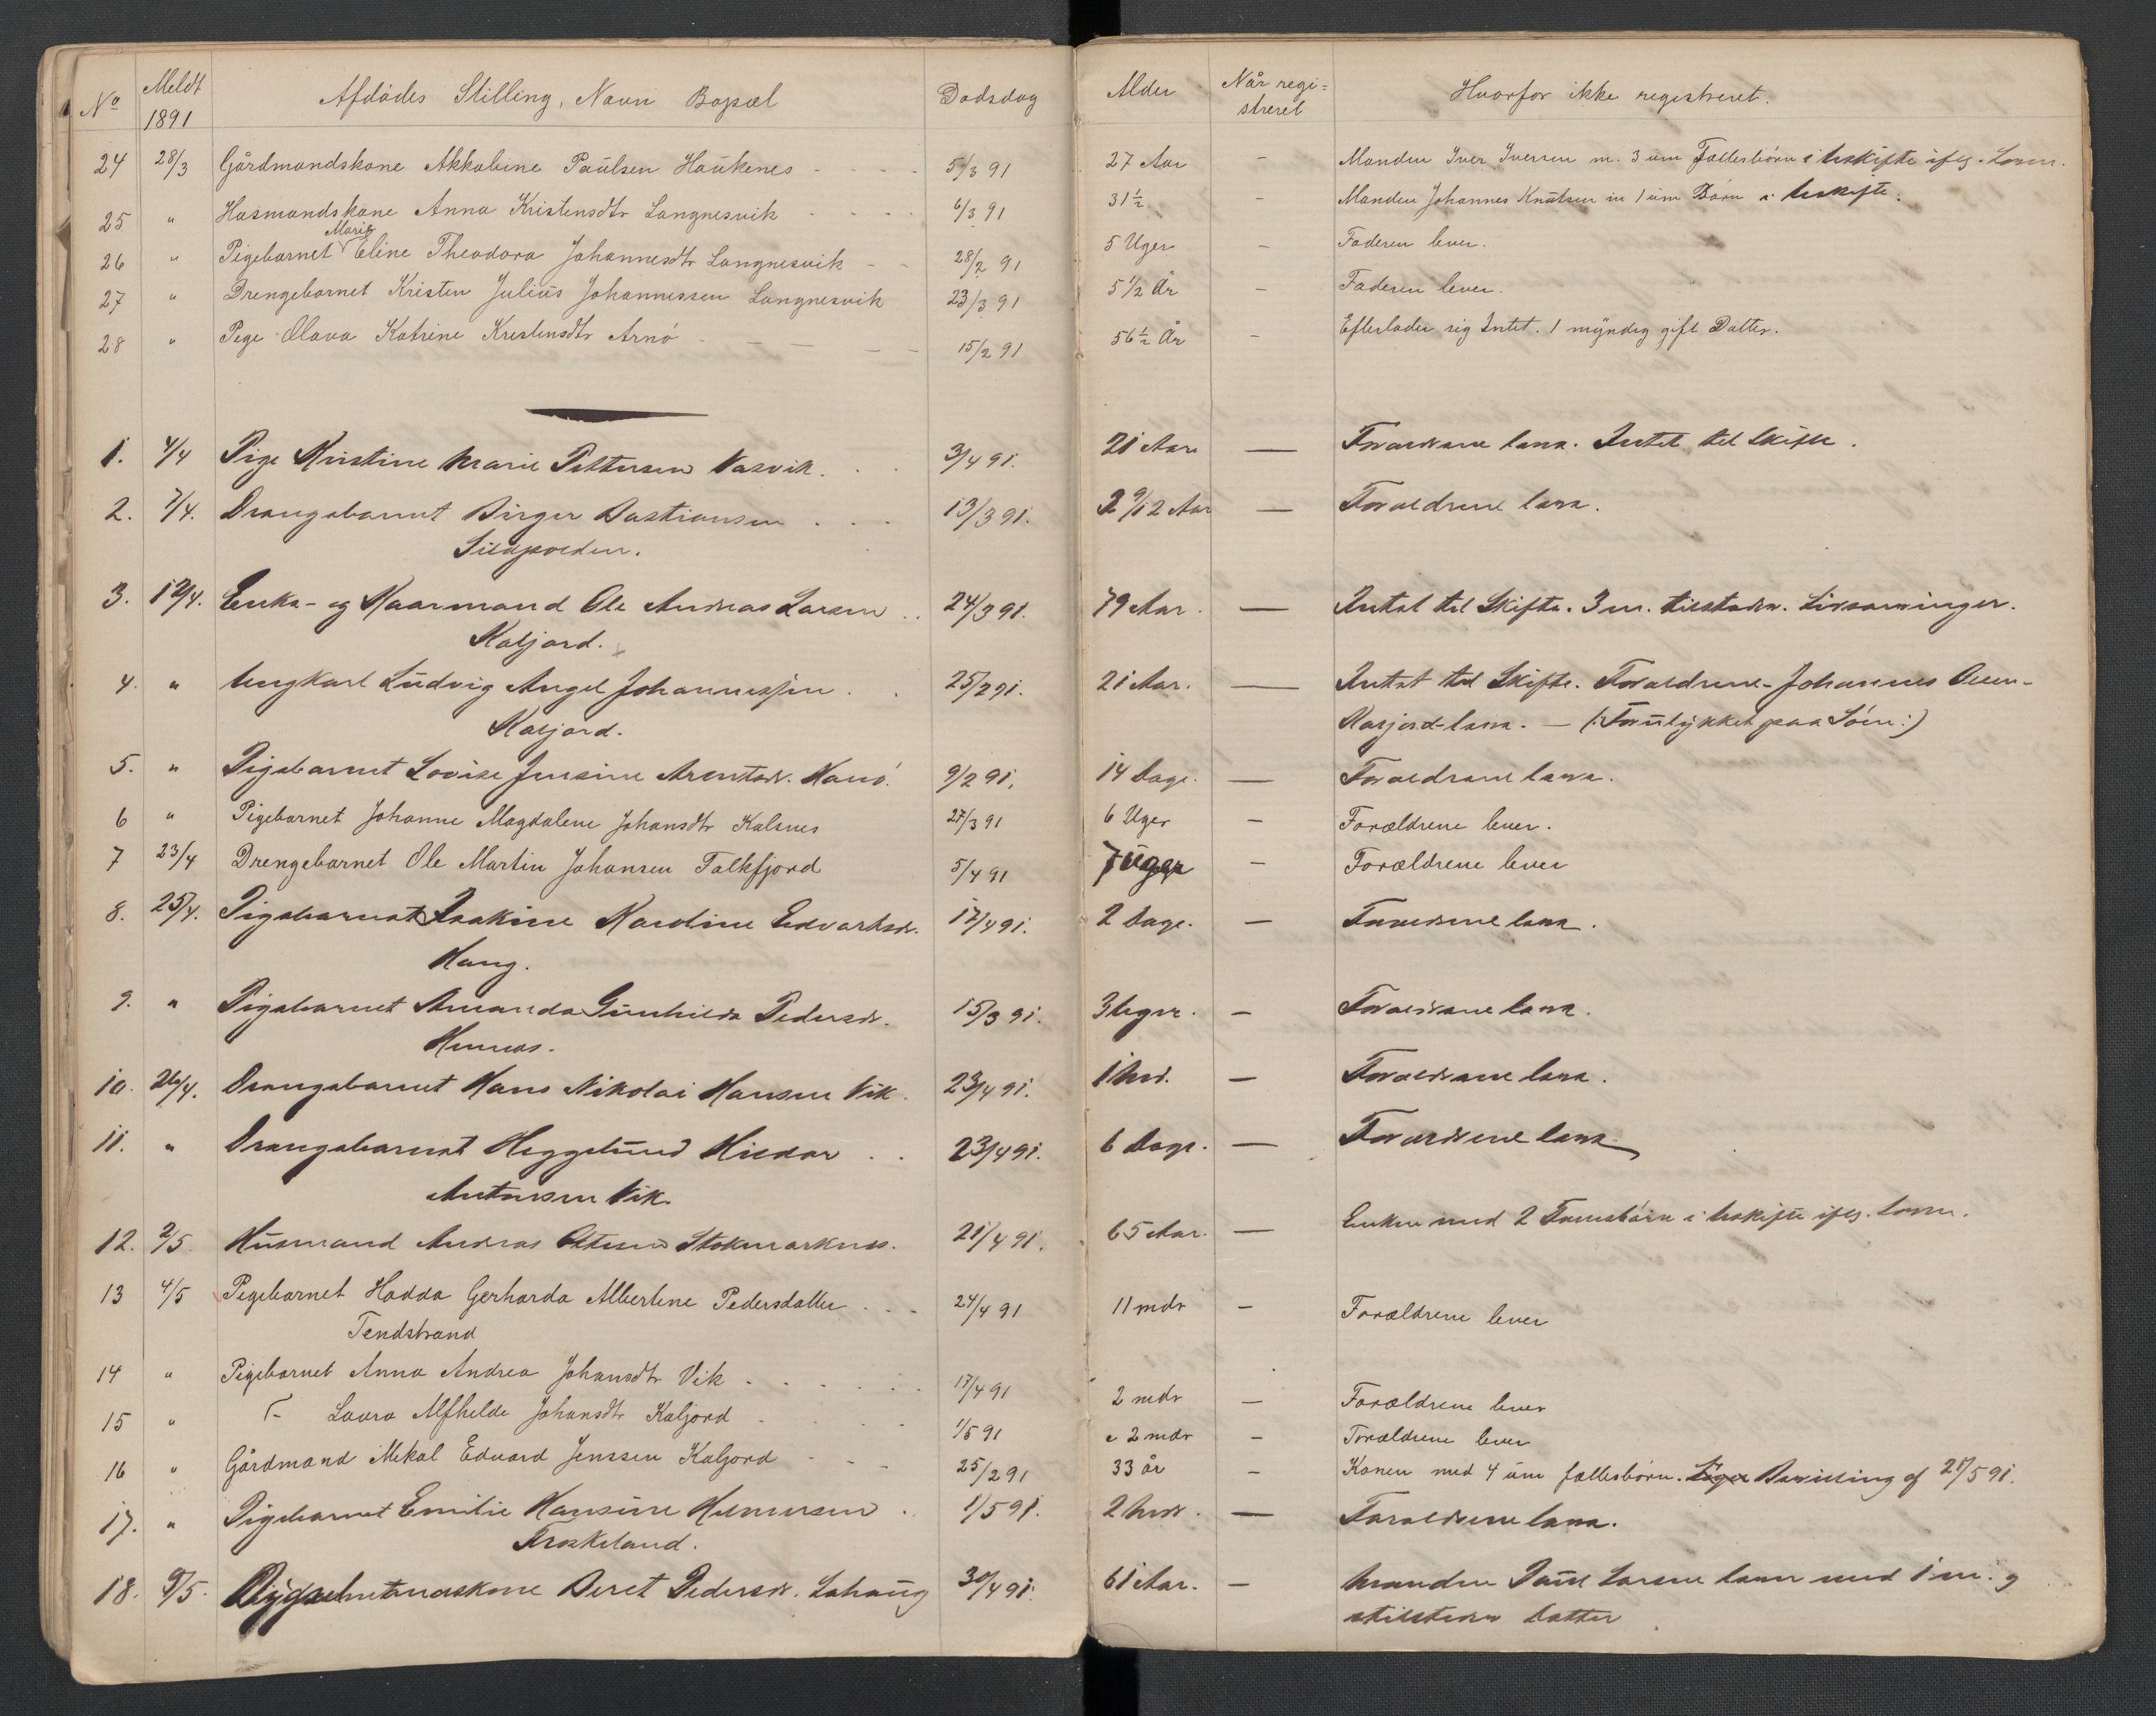 No Meldt 1891 Afdödes Stilling, Navn Bopæl Dødsdag Alder Når regi= streret Hvorfor ikke registreret.
24 28/3 Gårdmandskone Akkabine Paulsen Haukenes 5/3 91 27 Aar - Manden Iver Iversen m. 3 um Fællesbörn i Uskifte ifg. Loven.
25 " Husmandskone Anna Kristensdtr Langnesvik 6/3 91 31½ - Manden Johannes Knutsen m 1 um Barn i Uskifte.
26 " Pigebarnet Marie Eline Theodora Johannesdtr Langnesvik 28/2 91 5 Uger - Faderen lever.
27 " Drengebarnet Kristen Julius Johannessen Langnesvik 23/3 91 5 1/2 År - Faderen lever.
28 " Pige Olava Katrine Kristensdtr Arnö 15/2 91 56½ År - Efterlader sig Intet. 1 myndig gift Datter.
1. 4/4 Pige Kristine Marie Pettersen Vasvik. 3/4 91. 21 Aar — Forældrene leve. Intet til Skifte.
2. 7/4. Drengebarnet Birger Bastiansen 13/3 91. 2 9/12 Aar — Forældrene leve.
3. 12/4. Enke- og Kaarmand Ole Andreas Larsen 24/3 91. 79 Aar. — Intet til Skifte. 3 m. tilstedev. Livsarvinger.
Kaljord.
4. " Ungkarl Ludvig Angel Johannessen 25/2 91. 21 Aar. — Intet til Skifte. Forældrene - Johannes Olsen-
Kaljord. Kaljord - leve. — (: Forulykket paa Söen :)
5. " Pigebarnet Lovise Jensine Arentsdr. Hanö. 9/2 91. 14 Dage. — Forældrene leve.
6 " Pigebarnet Johanne Magdalene Johansdtr Kalsnes 27/3 91 6 Uger - Forældrene lever.
7 23/4 Drengebarnet Ole Martin Johansen Falkfjord 5/4 91 7 Uger - Forældrene lever
8. 25/4. Pigebarnet Joakine Karoline Edvardsdr. 17/4 91. 2 Dage. — Forældrene leve.
Haug.
9. " Pigebarnet Amanda Gunhilda Pedersdr. 15/3 91. 3 Uger. — Forældrene leve.
Kennes.
10. 26/4. Drengebarnet Hans Nikolai Hansen Vik. 23/4 91. 1 Md. — Forældrene leve.
11. " Drengebarnet Heggelund Hildor 23/4 91. 6 Dage. — Forældrene leve
Antonsen Vik.
12. 2/5. Husmand Andreas Ottesen Stokmarknes. 21/4 91. 65 Aar. — Enken med 2 Fællesbörn i Uskifte ifg. Loven.
13 4/5 Pigebarnet Hadda Gerharda Albertine Pedersdatter 24/4 91 11 mdr - Forældrene lever
Tendstrand
14 " Pigebarnet Anna Andrea Johansdtr Vik 17/4 91 2 mdr - Forældrene lever
15 " — Laura Alfhelde Johansdtr Kaljord 1/5 91 2 mdr - Forældrene lever
16 " Gårdmand Mikal Edvard Jenssen Kaljord 25/2 91 33 år - Konen med 4 um fællesbörn. Bevilling af 21/5 91.
17. " Pigebarnet Emilie Hansine Hilmersen 1/5 91. 2 Mdr. — Forældrene leve.
Froskeland.
18. 9/5. Beret Pedersdr. Lahaug 30/4 91. 61 Aar. — Manden Paul Larsen lever med 1 m. og
tilstedev Datter